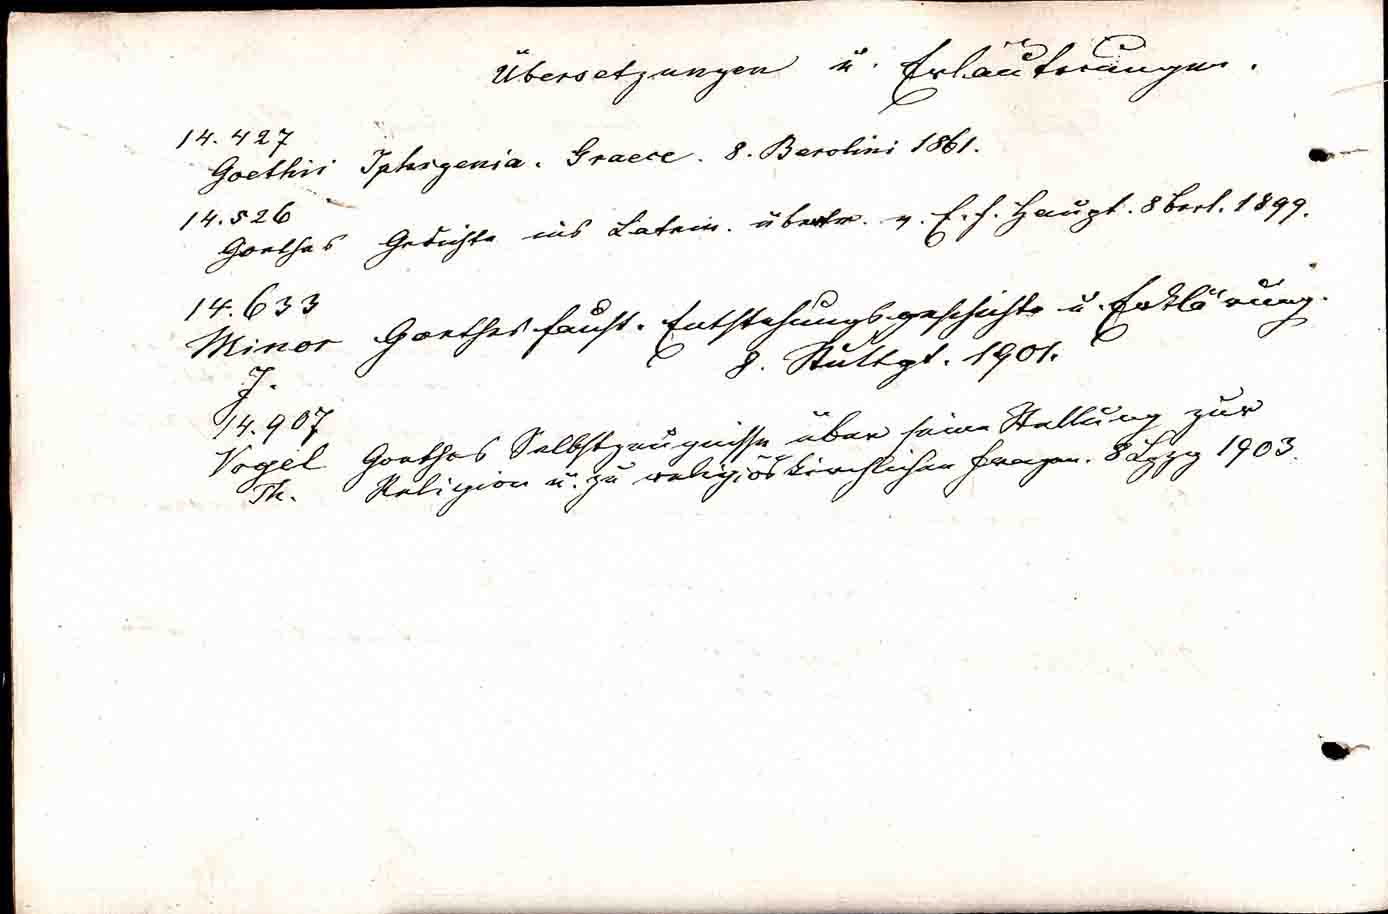 Übersetzungen u. Erläuterungen.
14.427
Goethii Iphigenia. Graece. 8. Berolini 1861.
14.526
Goethes Gedichte ins Latein. übertr. v. E. F. Haupt. 8 Berl. 1899.
14.633
Minor Goethes Faust. Entstehungsgeschichte u. Erklärung.
J. 8. Stuttgt. 1901.
14.907
Vogel Goethes Selbstzeugnisse über seine Stellung zur
Th. Religion u. zu religiös kirchlichen Fragen. 8 Lpzg 1903.